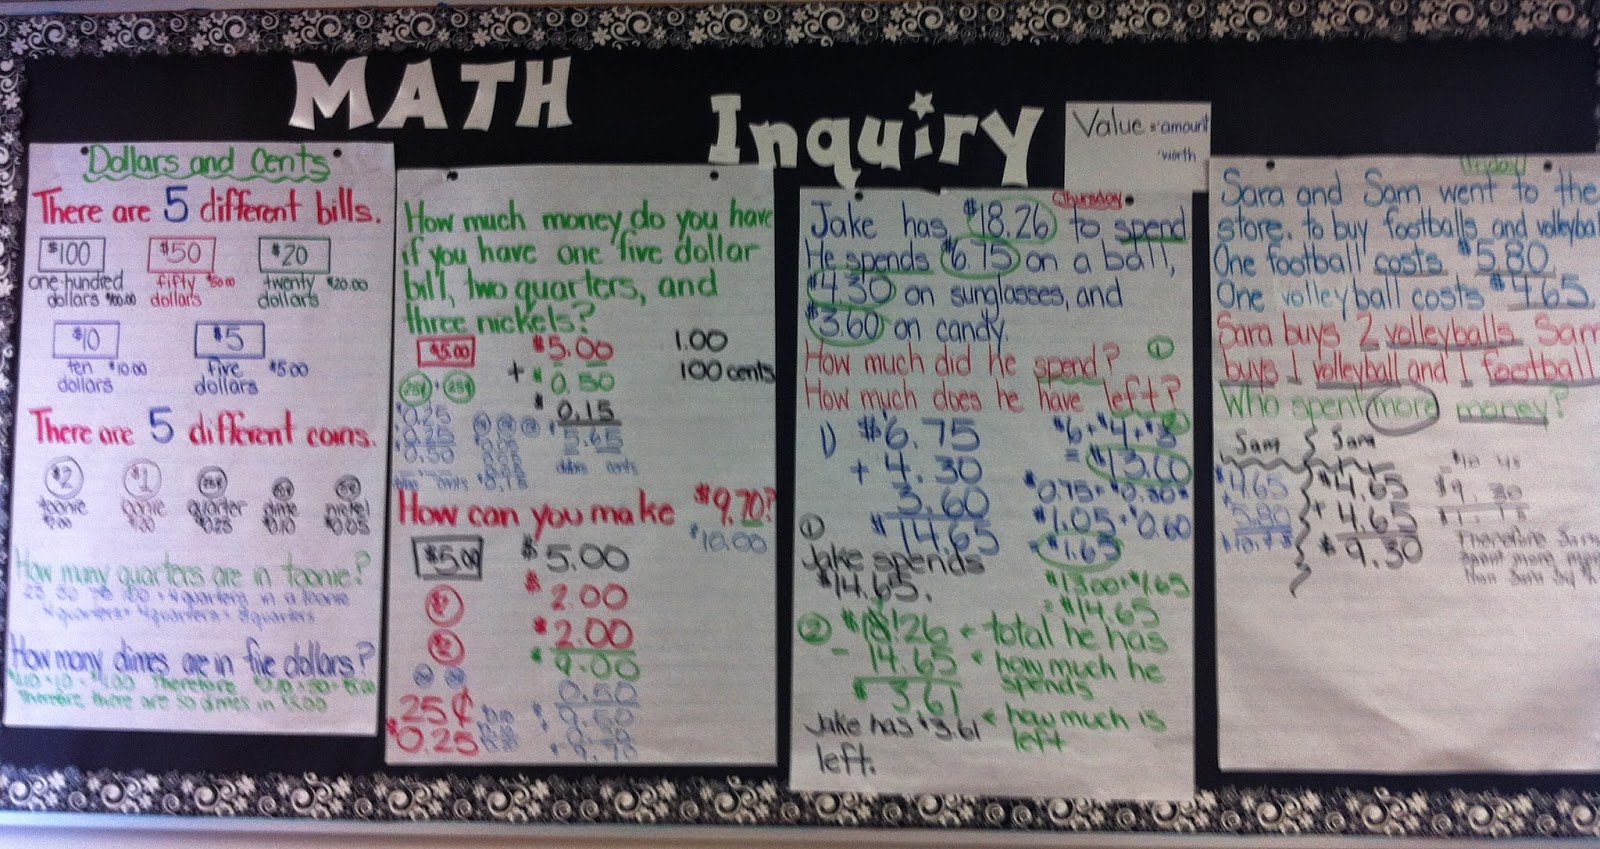 MATH
Inquiry
Value = amount
worth
Dollars and Cents
There are 5 different bills.
$100 $50 $20
one hundred fifty $50.00 twenty $20.00
dollars $100.00 dollars dollars
$10 $5
ten $10.00 five $5.00
dollars dollars
There are 5 different coins.
$2 $1 25¢ 10¢ 5¢
toonie loonie quarter dime nickel
$2.00 $1.00 $0.25 $0.10 $0.05
How many quarters are in toonie?
4 quarters in a toonie
4 quarters + 4 quarters = 8 quarters
How many dimes are in five dollars?
Therefore
Therefore there are 50 dimes in $5.00
How much money do you have
if you have one five dollar
bill, two quarters, and
three nickels?
$5.00 $5.00 1.00
25¢ + 25¢ + $0.50 100 cents
$0.25 $0.15
0.25 5.65
0.50
$0.15
How can you make $9.70?
$10.00
$5.00 $5.00
$2.00
$2.00
$9.00
0.50
25¢ 9.50
$0.25 9.70
Thursday
Jake has $18.26 to spend
He spends $6.75 on a ball,
$4.30 on sunglasses, and
$3.60 on candy.
How much did he spend? 1
How much does he have left? 2
1) $6.75 $6 + $4 + $3
+ 4.30 = $13.00
3.60 $0.75 + $0.30 =
$14.65 $1.05 + $0.60
= $1.65
1
Jake spends
$14.65.
$13.00 + $1.65
= $14.65
2 $18.26 ← total he has
- 14.65 ← how much he
spends
$3.61
Jake has $3.61 ← how much is
left. left
Friday
Sara and Sam went to the
store. to buy footballs and volleybal
One football costs $5.80
One volleyball costs $4.65.
Sara buys 2 volleyballs. Sam
buys 1 volleyball and 1 football
Who spent more money?
Sam Sara
$4.65 $4.65
5.80 + 4.65
$10.45 $9.30
$10.45
$9.30
$1.15
Therefore Sam
spent more
than Sara by